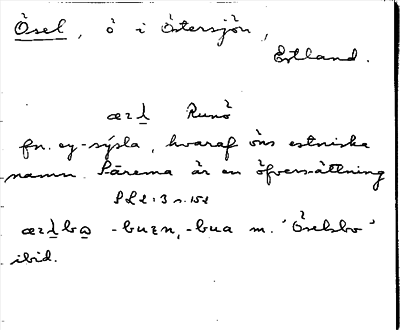 Ösel, ö i Östersjön,
Estland.
Runö
fn. ey-sýsla, hvaraf öns estniska
namn Särema är en öfversättning
SL 2:3 s. 152
-buan, -bua m. 'Öselsbo'
ibid.